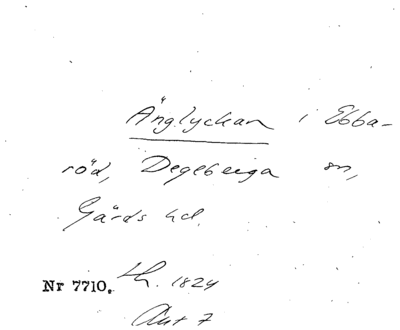 Änglyckan i Ebba-
röd, Degeberga sn,
Gärds hd.
Nr 7710. Lh. 1824
Akt 7